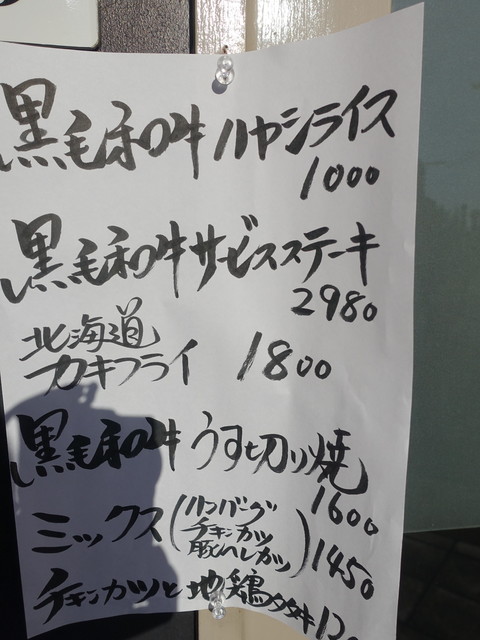 黒毛和牛ハヤシライス
1000
黒毛和牛サービスステーキ
2980
北海道
カキフライ 1800
黒毛和牛うす切り焼
1600
ミックス(ハンバーグ
チキンカツ
豚ヘレカツ) 1450
チキンカツと地鶏タタキ